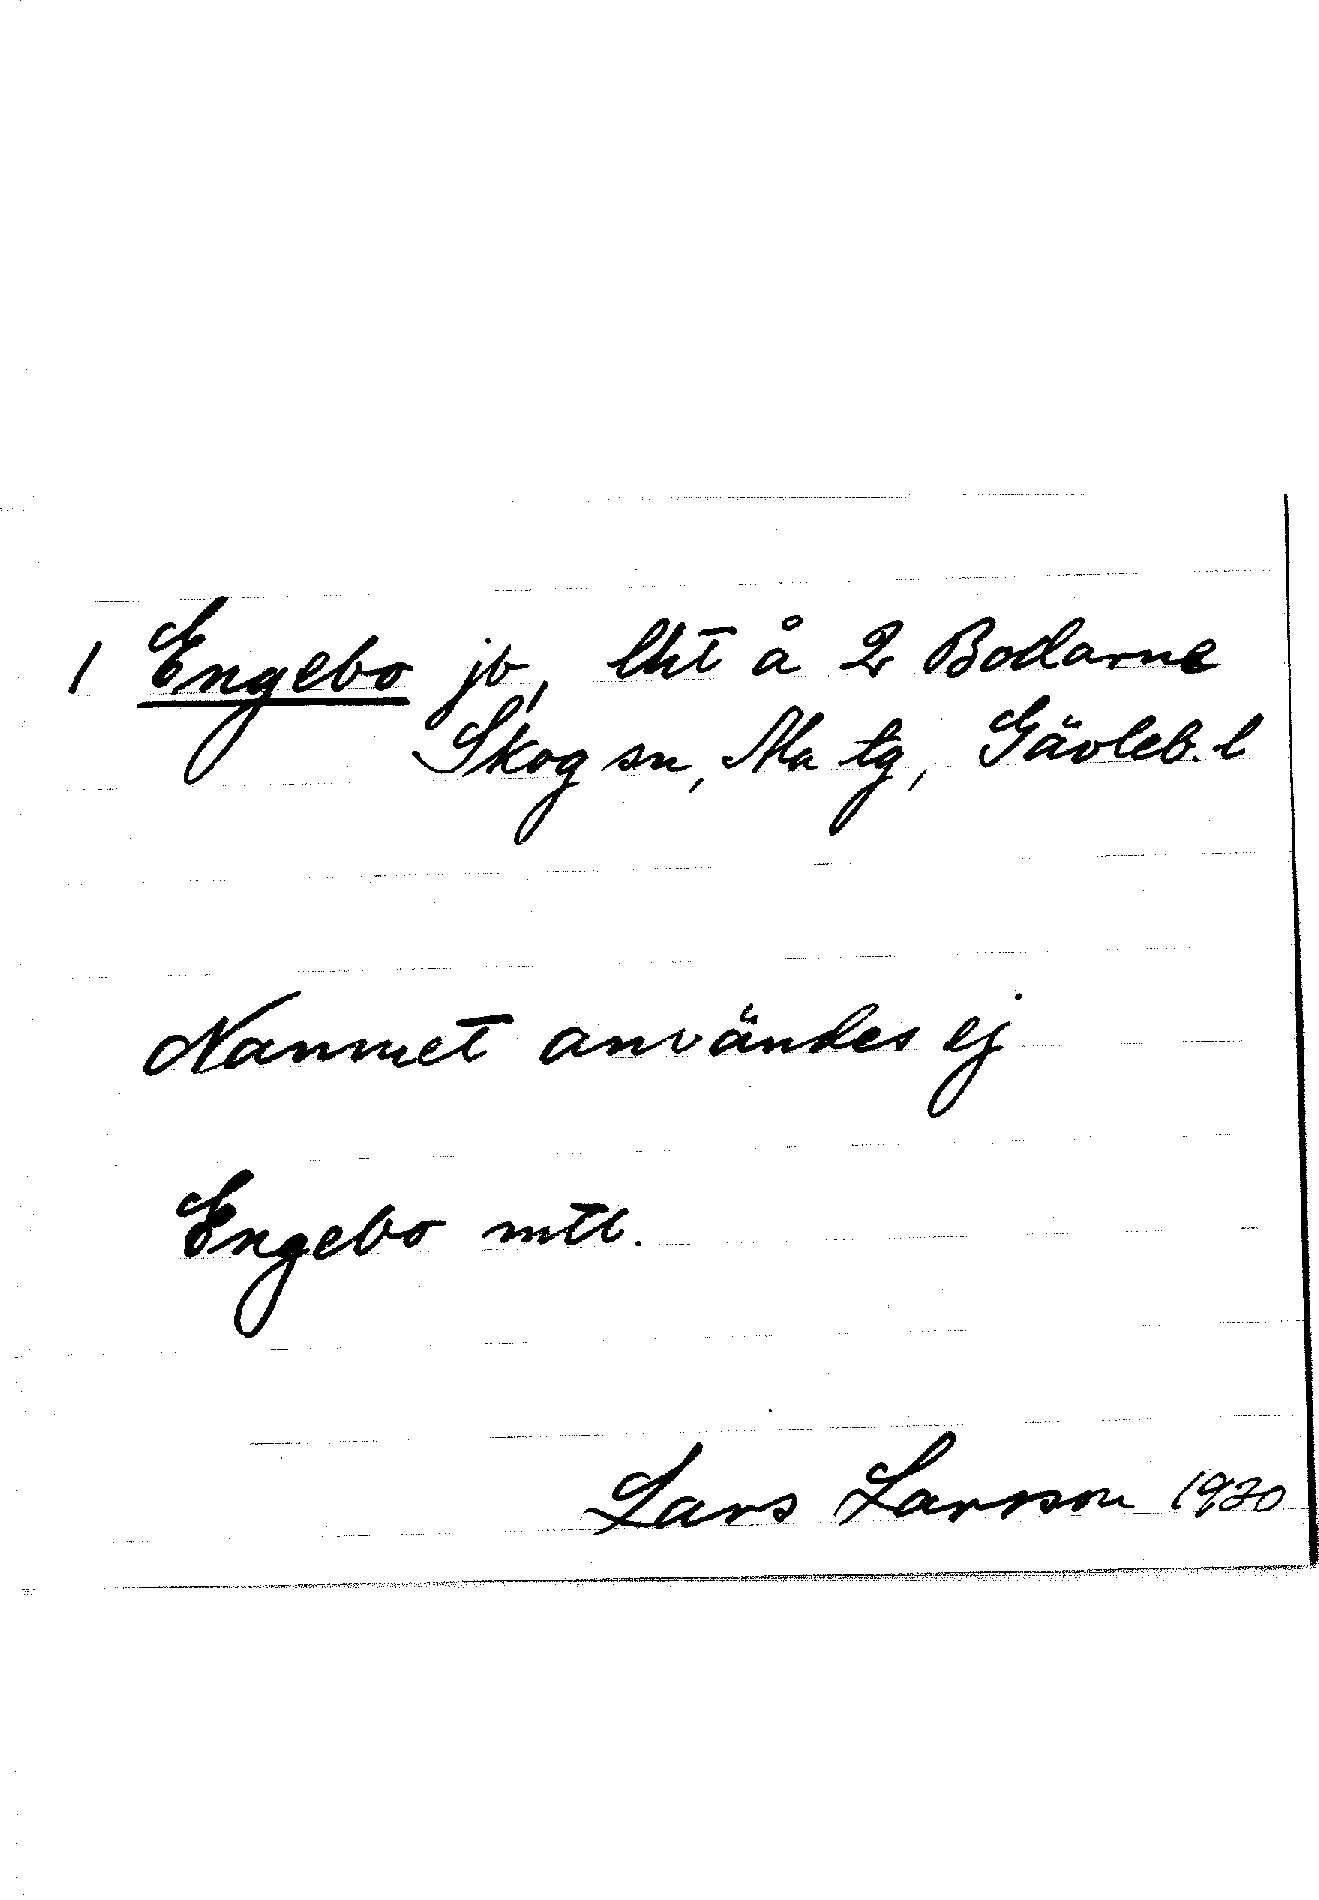 1 Engebo jb, lht å 2 Bodarne
Skog sn, Ala tg, Gävleb. l
Namnet användes ej
Engebo mtl.
Lars Larsson 1930